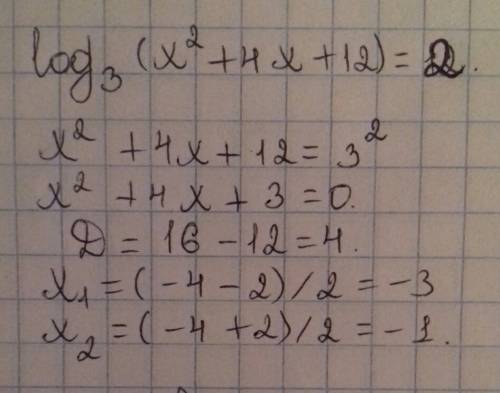 log₃ (x² + 4x + 12) = 2.
x² + 4x + 12 = 3²
x² + 4x + 3 = 0.
D = 16 - 12 = 4.
x₁ = (-4 - 2) / 2 = -3
x₂ = (-4 + 2) / 2 = -1.